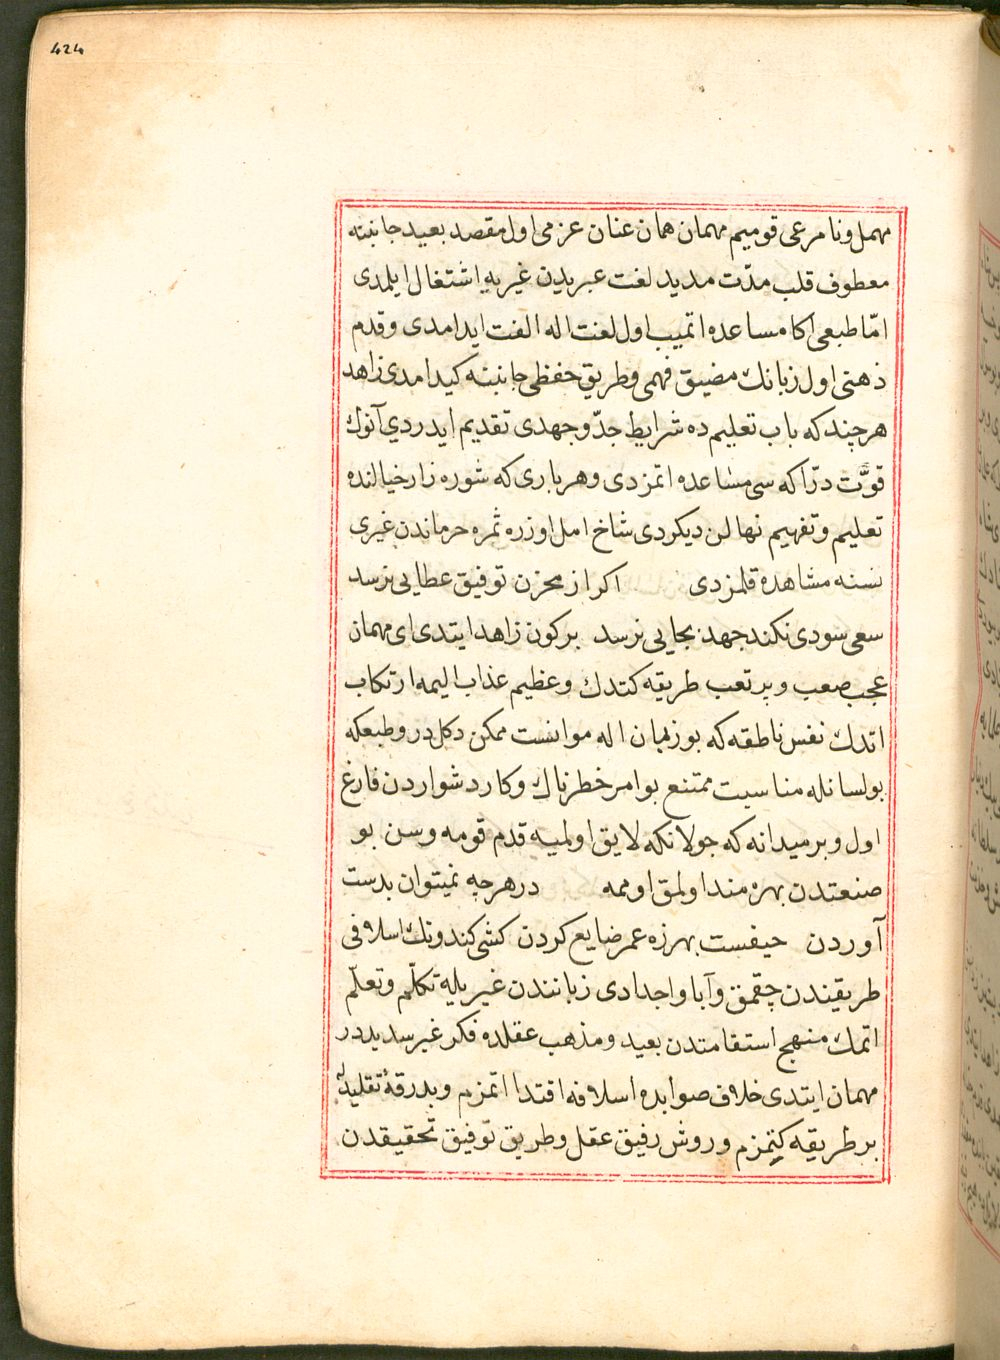 424
مهمل ونا مرعی قومیم مهمان همان عنان عزمی اول مقصد بعید جانبنه
معطوف قلب مدّت مدید لغت عبریدن غیریه اشتغال ایلمدی
امّا طبعی اکا مساعده اتمیب اول لغت اله الفت ایدامدی وقدم
ذهنی اول زبانك مضیق فهمی وطریق حفظی جانبنه کیدامدی زاهد
هرچند که باب تعلیم ده شرایط جدّ وجهدی تقدیم ایدردی آنوك
قوّت درّاکه سی مساعده اتمزدی وهر باری که شوره زار خیالنده
تعلیم وتفهیم نهالن دیکردی شاخ امل اوزره ثمره حرماندن غیری
نسنه مشاهده قلمزدی اکر از مخزن توفیق عطایی نرسد
سعی سودی نکند جهد بجایی نرسد برکون زاهد ایتدی ای مهمان
عجب صعب وپر تعب طریقه کتدك وعظیم عذاب الیمه ارتکاب
اتدك نفس ناطقه که بو زبان اله موانست ممکن دکلدر وطبعکه
بو لسانله مناسبت ممتنع بو امر خطرناك وکار دشواردن فارغ
اول وبر میدانه که جولانکه لایق اولمیه قدم قومه وسن بو
صنعتدن بهره مند اولمق اومه در هرچه نمیتوان بدست
آوردن حیفست بهرزه عمر ضایع کردن کشی کندونك اسلافی
طریقیندن چقمق وآبا واجدادی زبانندن غیر یله تکلّم وتعلّم
اتمك منهج استقامتدن بعید ومذهب عقلده فکر غیر سدیددر
مهمان ایتدی خلاف صوابده اسلافه اقتدا اتمزم وبدرقهٔ تقلیدله
بر طریقه کتمزم وروش رفیق عقل وطریق توفیق تحقیقدن